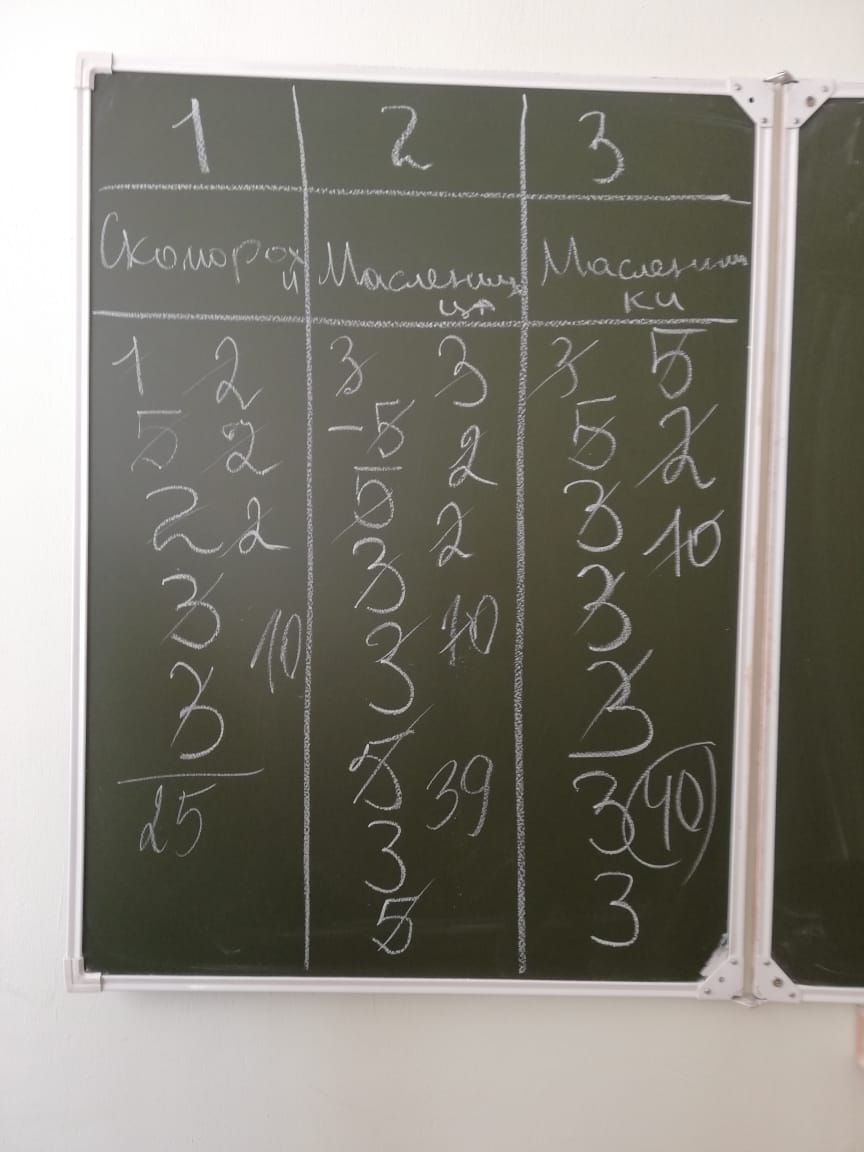 1 2 3
Скоморохи Масленица Масленички
1 2 3 3 3 5
5 2 -5 2 5 2
2 2 5 2 3 10
3 10 3 10 3
3 3 3
25 5 39 3 40
3 3
5